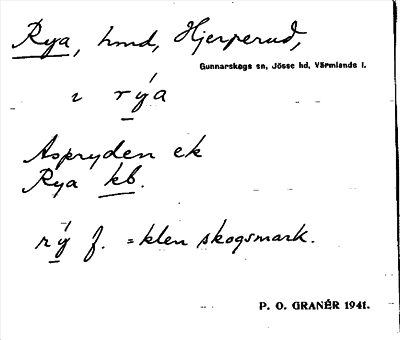 Rya, hmd, Hjerperud,
Gunnarskogs sn, Jösse hd, Värmlands l.
i rýa
Aspryden ek
Rya kb.
rý f. = klen skogsmark.
P. O. GRANÉR 1941.